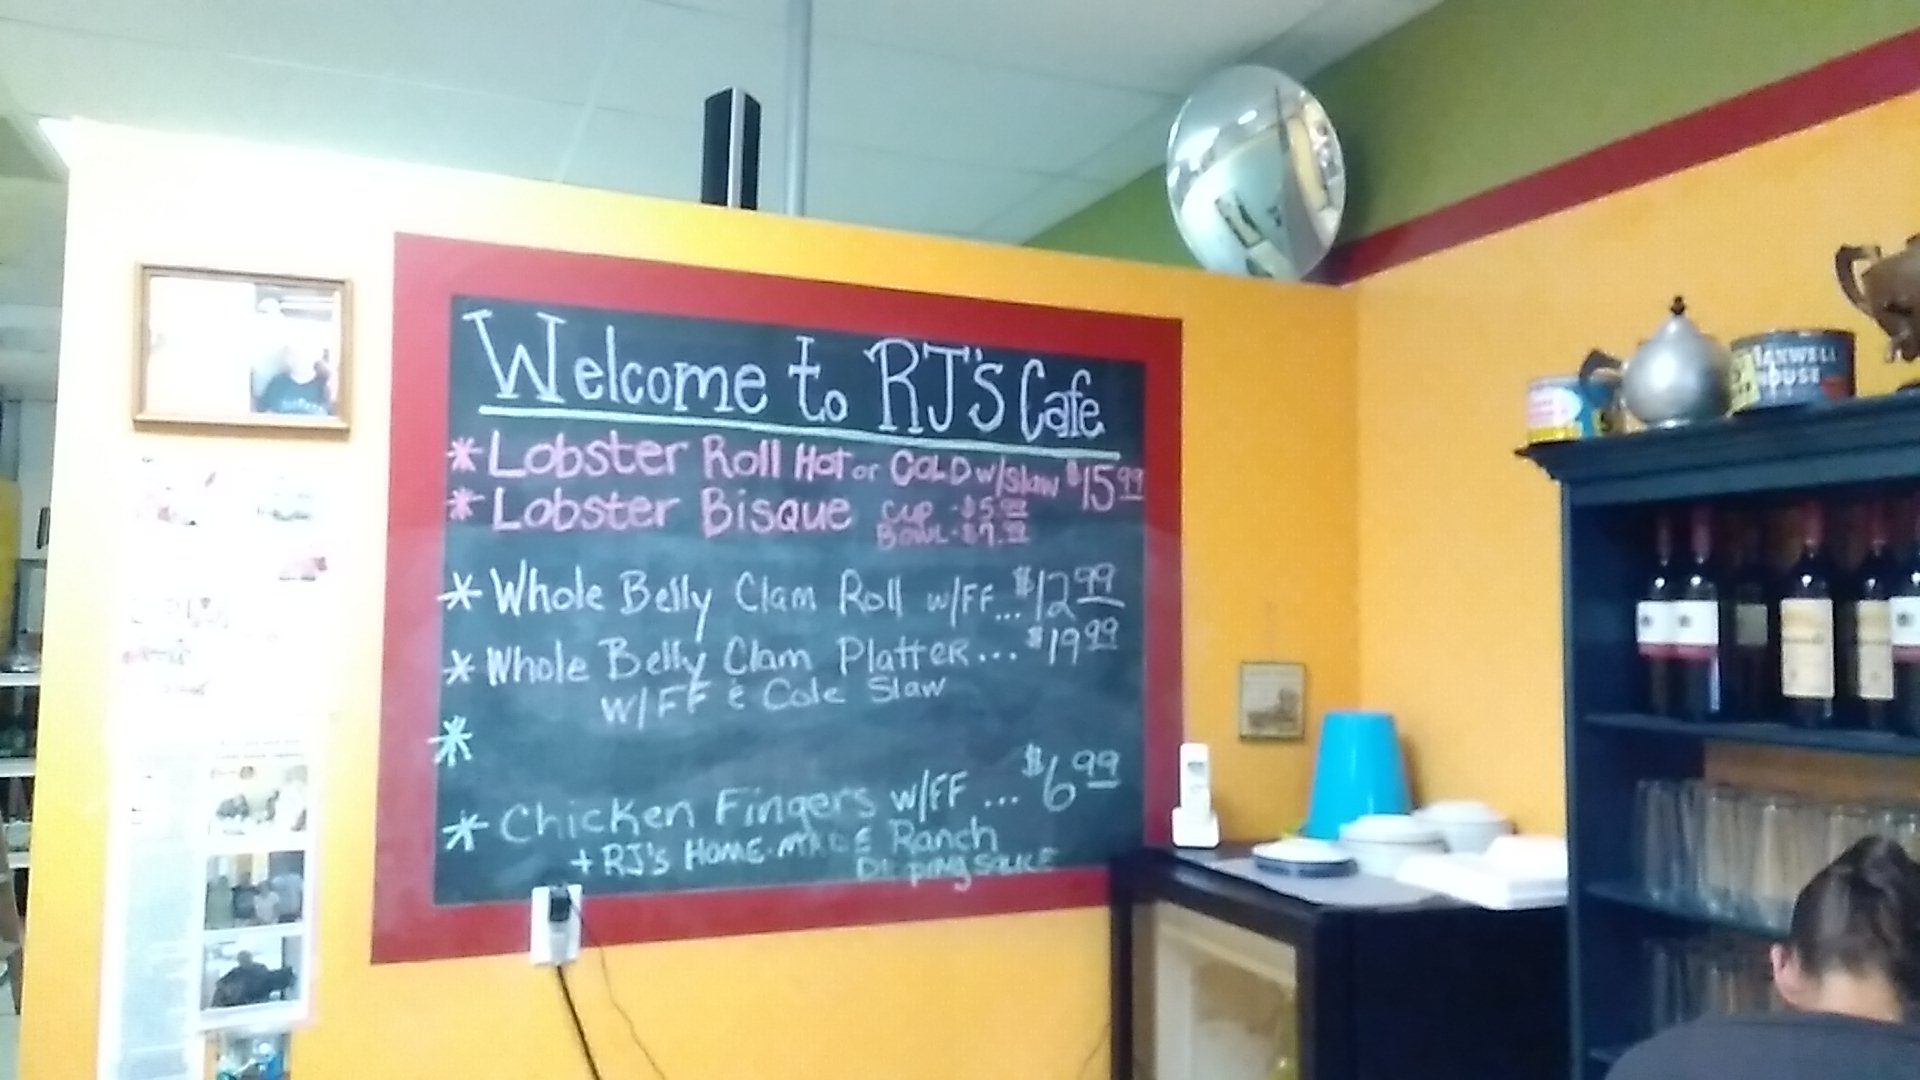 Welcome to RJ's Cafe
* Lobster Roll Hot or COLD w/slaw $15.99
* Lobster Bisque Cup - $5.99
Bowl - $7.99
* Whole Belly Clam Roll w/FF... $12.99
* Whole Belly Clam Platter... $19.99
w/FF & Cole Slaw
*
* Chicken Fingers w/FF ... $6.99
+ RJ's Home-made Ranch
Dipping Sauce
MAXWELL
HOUSE